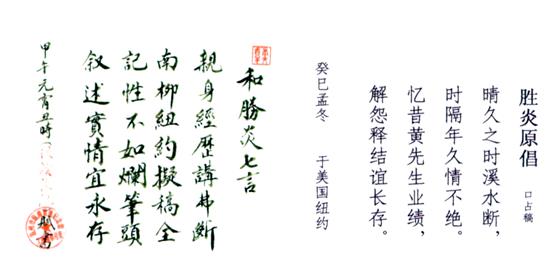 胜炎原倡 口占稿
晴久之时溪水断，
时隔年久情不绝。
忆昔黄先生业绩，
解怨释结谊长存。
癸巳孟冬 于美国纽约
和勝炎七言
親身經歷講弗斷
南柳紐約擬稿全
記性不如爛筆頭
叙述實情宜永存
甲午元宵丑時